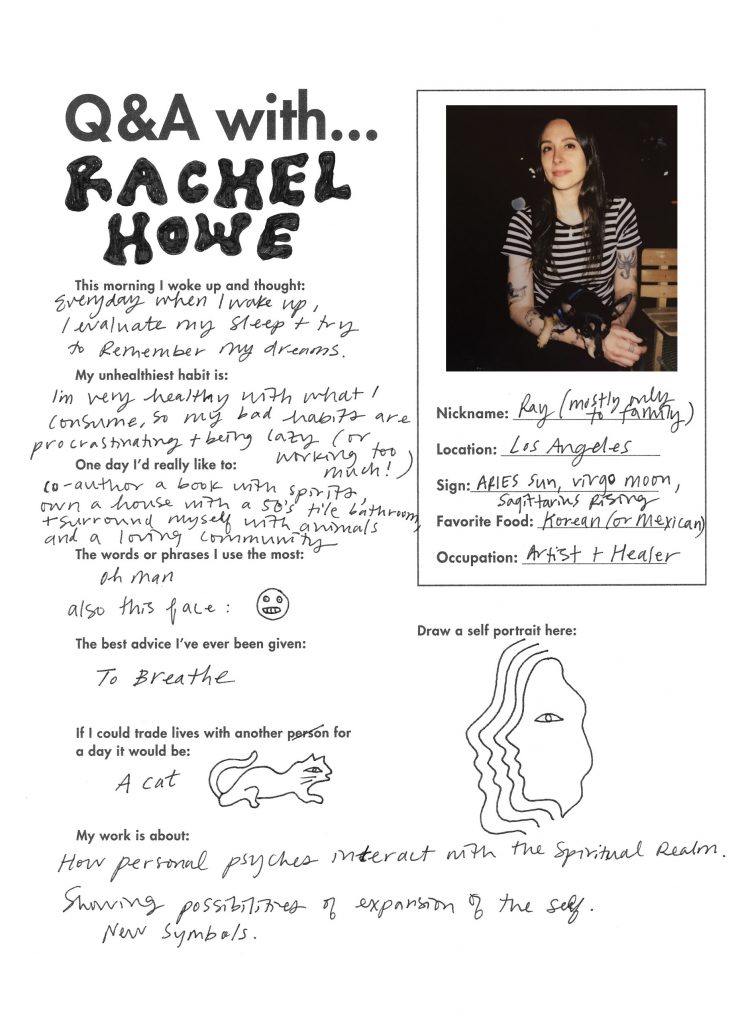 Q&A with...
RACHEL
HOWE
This morning I woke up and thought:
Everyday when I wake up,
I evaluate my sleep + try
to Remember my dreams.
My unhealthiest habit is:
I'm very healthy with what I
consume, so my bad habits are
procrastinating + being lazy (or
working too
much!)
One day I'd really like to:
co-author a book with spirits,
own a house with a 50's tile bathroom,
+ surround myself with animals
and a loving community
The words or phrases I use the most:
oh man
also this face:
The best advice I've ever been given:
To Breathe
If I could trade lives with another person for
a day it would be:
A cat
My work is about:
How personal psyches interact with the Spiritual Realm.
Showing possibilities of expansion of the self.
New Symbols.
Nickname: Ray (mostly only
to family)
Location: Los Angeles
Sign: ARIES sun, virgo moon,
Sagittarius Rising
Favorite Food: Korean (or Mexican)
Occupation: Artist + Healer
Draw a self portrait here: